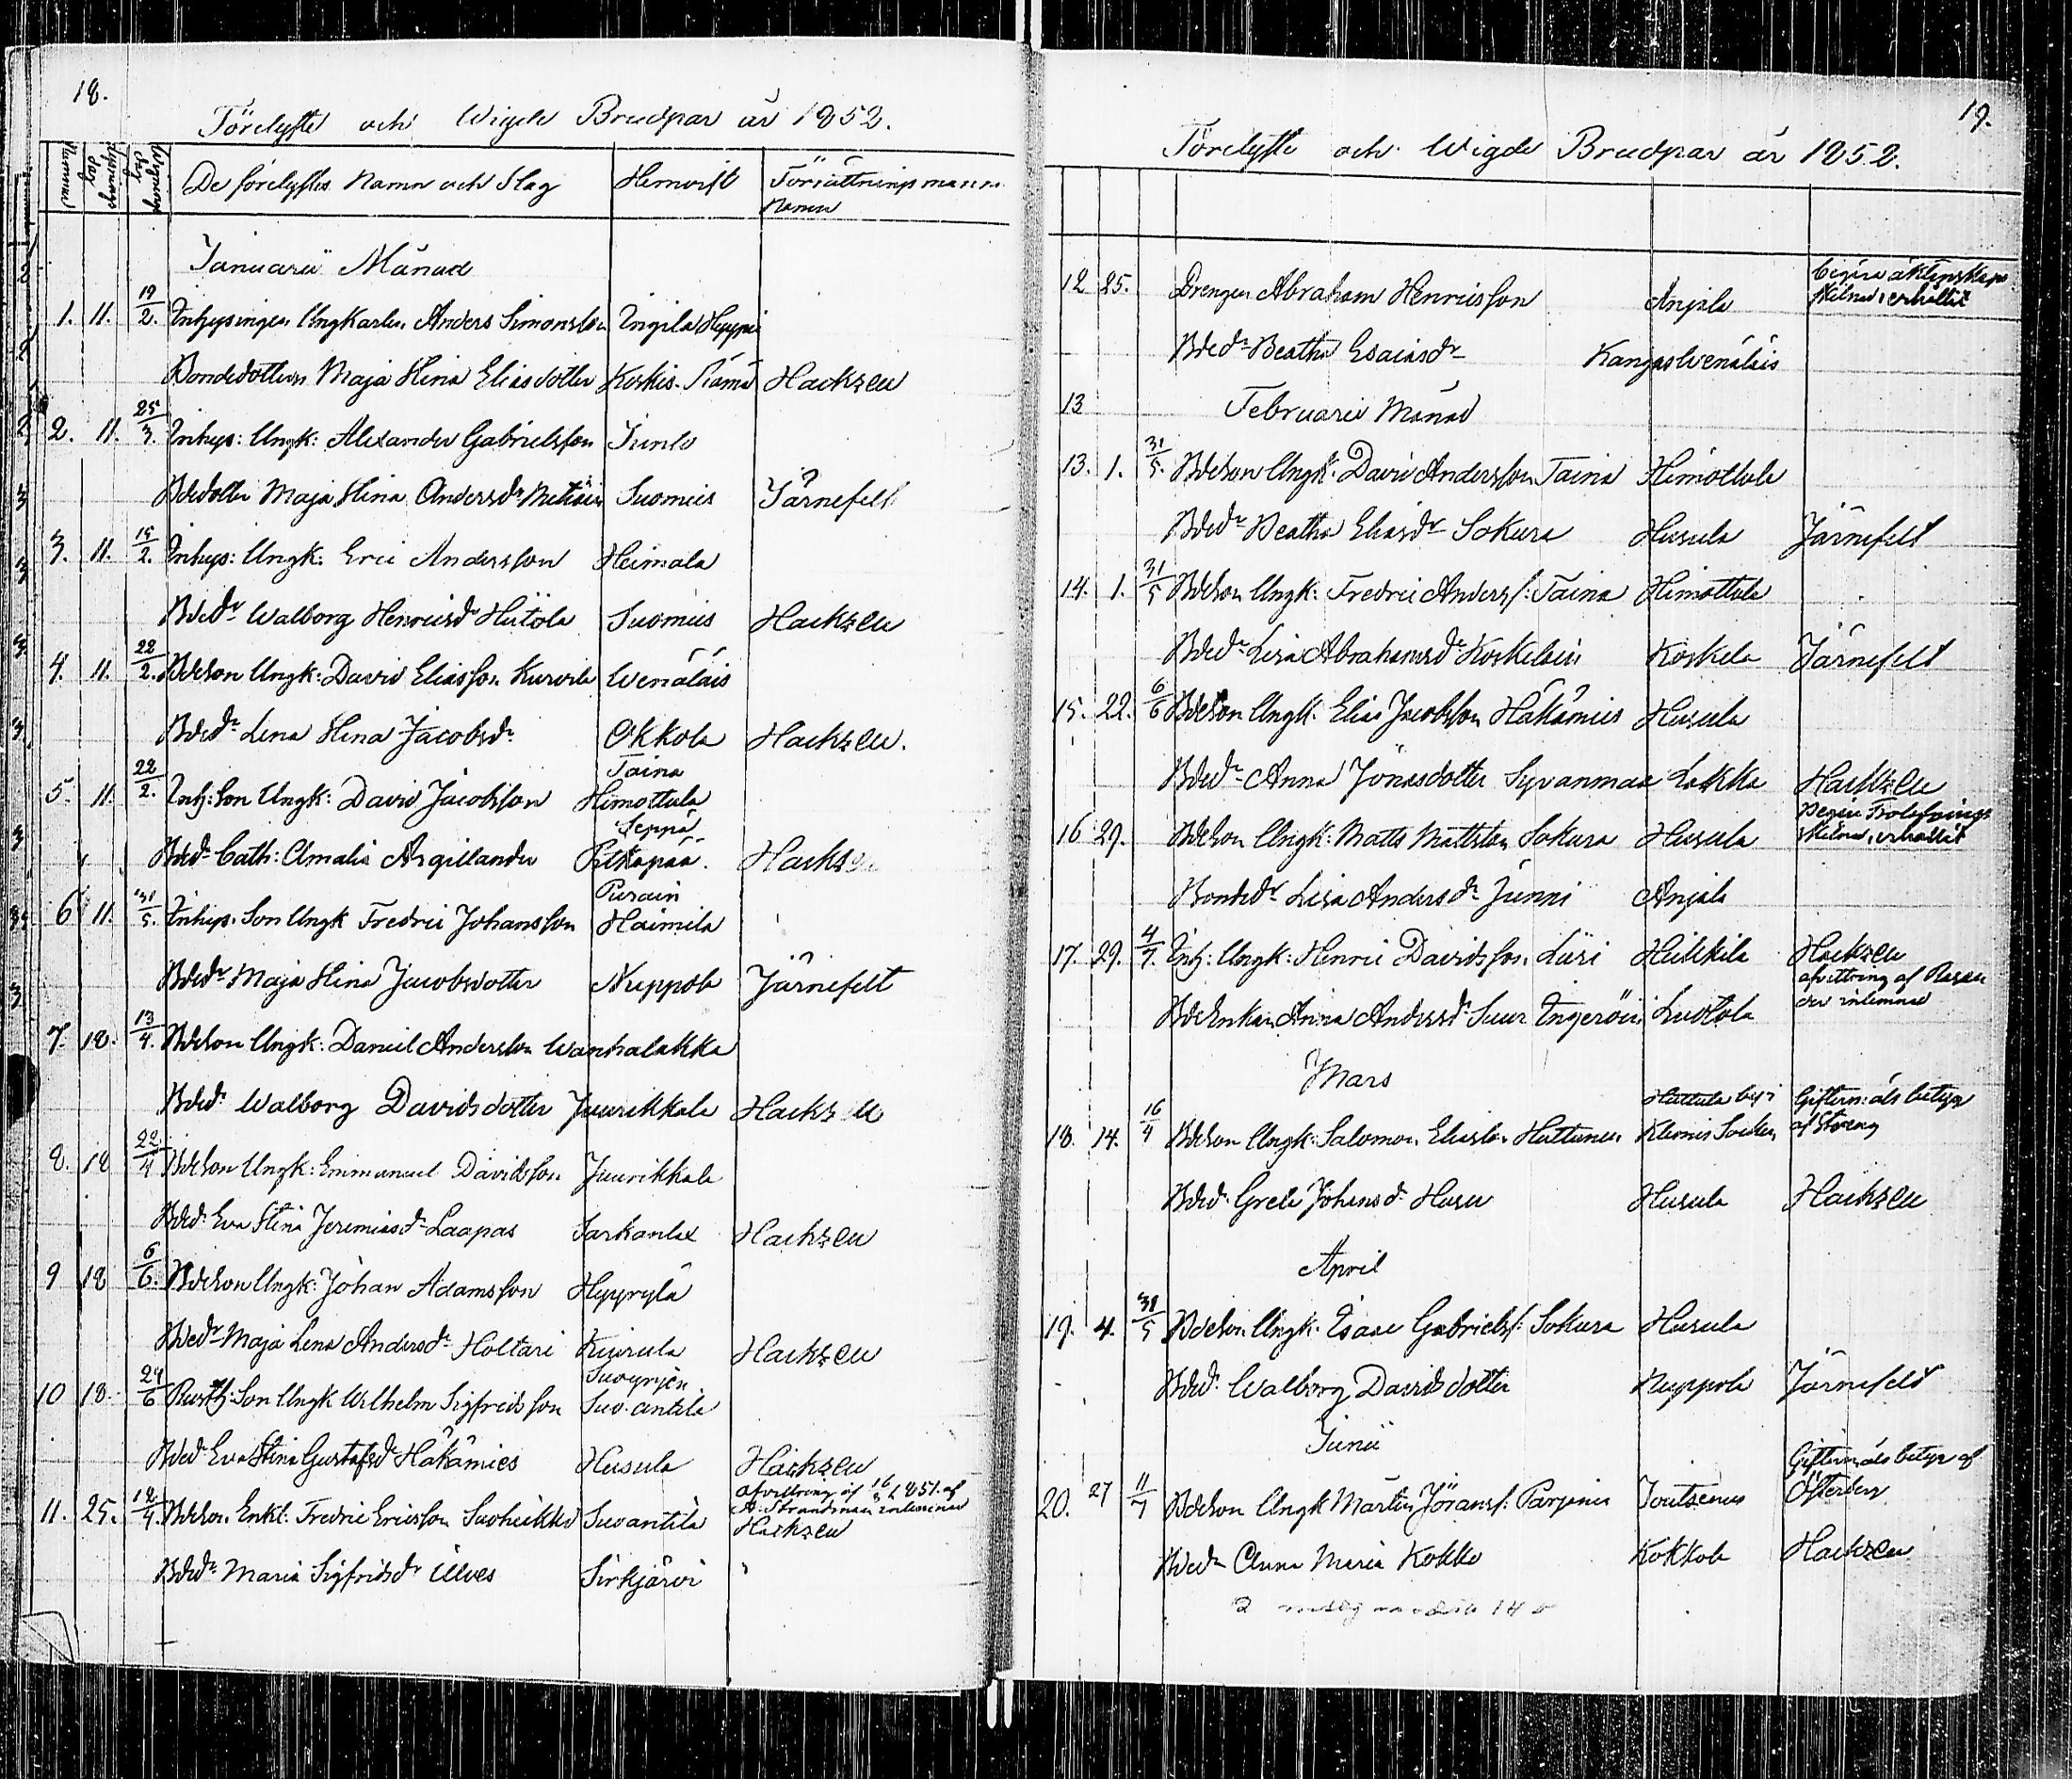 18.
Förelyste och Wigde Brudpar år 1852.
Nummer
Lysnings dag
Wigsel dag
De förelystes Namn och Slag
Hemvist
Förrättnings mannens Namn
Januarii Månad
1. 11. 19/2. Inhysingen Ungkarlen Anders Simonsson Ingila Hyppi
Bondedottren Maja Stina Eliasdotter Koskis Rämä Hackzell
2. 11. 25/3. Inhys: Ungk: Alexander Gabrielsson Junlo
Bdedotter Maja Stina Andersdr Suomies Järnefelt
3. 11. 15/2. Inhys: Ungk: Eric Andersson Heimala
Bdedr Walborg Henricsdr Hütölä Suomies Hackzell
4. 11. 22/2. Bdeson Ungk: David Eliasson Kurvila Wenäläis
Bdedr Lena Stina Jacobsdr Okkola Hackzell.
5. 11. 22/2. Inh: Son Ungk: David Jacobsson Taina Himottula
Bdedr Cath: Amalia Argillander Seppä Pitkäpää. Hackzell
6 11. 31/5. Inhys. Son Ungk Fredric Johansson Purain Haimila
Bdedr Maja Stina Jacobsdotter Nuppola Järnefelt
7. 18. 13/4. Bdeson Ungk: Daniel Andersson Wanhalakka
Bdedr Walborg Davidsdotter Juurikkala Hackzell
8. 18 22/4 Bdeson Ungk: Emmanuel Davidsson Juurikkala
Bdedr Eva Stina Jeremiasdr Laapas Sarkanlax Hackzell
9 18 6/6. Bdeson Ungk: Johan Adamsson Hyyrylä
Bdedr Maja Lena Andersdr Holtari Kiurula Hackzell
10 18. 24/6 Son Ungk Wilhelm Sigfridsson Suoyrjen Suo-antila
Bdedr Eva Stina Gustafsdr Häkämies Husula Hackzell
11. 25. 12/4. Bdeson. Enkl: Fredric Ericsson Suoheikki Suoantila Afvittring af 16/8 1851. af A. Strandman inlemnad Hackzell
Bdedr Maria Sigfridsdr Ilves Sirkjärvi
19.
Förelyste och Wigde Brudpar år 1852.
12 25. Drengen Abraham Henricsson Anjala Begära äktenskaps skilnad, erhållit
Bdedr Beatha Esaiasdr Kangas Wenäläis
13 Februarii Månad
13. 1. 31/5. Bdeson Ungk: David Andersson Taina Himottula
Bdedr Beatha Eliasdr Sokura Husula Järnefelt
14. 1. 31/5 Bdeson Ungk: Fredric Anderss: Taina Himottula
Bdedr Lisa Abrahamsdr Koskelain Koskela Järnefelt
15. 22. 6/6 Bdeson Ungk: Elias Jacobsson Häkämies Husula
Bdedr Anna Jönasdotter Syvanmaa Lakka Hackzell
16 29. Bdeson Ungk: Matts Mattsson Sokura Husula Begära Trolofnings skilnad, erhållit
Bondedr Lisa Andersdr Junni Anjala
17. 29. 4/7. Inh: Ungk: Henric Davidsson Liiri Heikkilä Hackzell
Bde Enkan Anna Andersdr Suur Ingeröin Lustola afvittring af inlemnad
Mars
18. 14. 16/4 Bdeson Ungk: Salomon Eliasson Huttunen Huttula by i Klemis Socken Giftermåls betyg af Storeng
Bdedr Greta Johansdr Husu Husula Hackzell
April
19. 4. 31/5 Bdeson Ungk: Isaac Gabrielss: Sokura Husula
Bdedr Walborg Davidsdotter Nuppola Järnefelt
Junii
20. 27 11/7 Bdeson Ungk Martin Jöranss: Parjanen Joutsenus Giftermåls betyg af Österberg
Bdedr Anna Maria Kokko Kokkola Hackzell